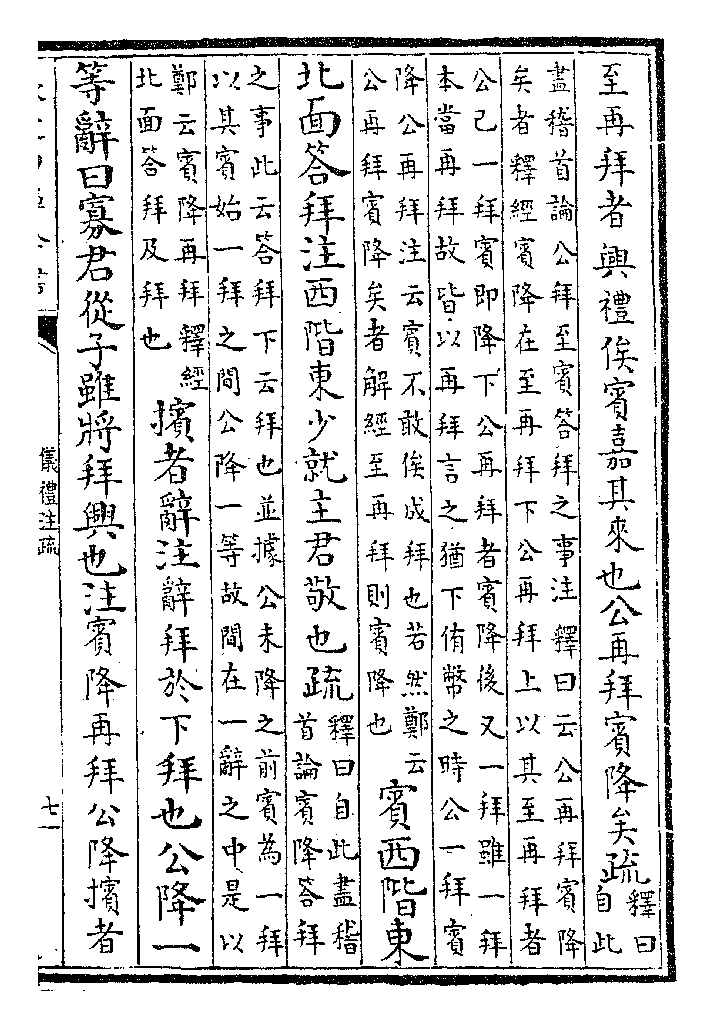 至再拜者興禮俟賓嘉其來也公再拜賓降矣疏
釋曰
自此
盡稽首論公拜至賓答拜之事注釋曰云公再拜賓降
矣者釋經賓降在至再拜下公再拜上以其至再拜者
公已一拜賓即降下公再拜者賓降後又一拜雖一拜
本當再拜故皆以再拜言之猶下侑幣之時公一拜賓
降公再拜注云賓不敢俟成拜也若然鄭云
公再拜賓降矣者解經至再拜則賓降也
賓西階東
北面答拜注西階東少就主君敬也疏
釋曰自此盡稽
首論賓降答拜
之事此云答拜下云拜也並據公未降之前賓為一拜
以其賓始一拜之間公降一等故間在一辭之中是以
鄭云賓降再拜釋經
北面答拜及拜也
擯者辭注辭拜於下拜也公降一
等辭曰寡君從子雖將拜興也注賓降再拜公降擯者
儀禮注疏